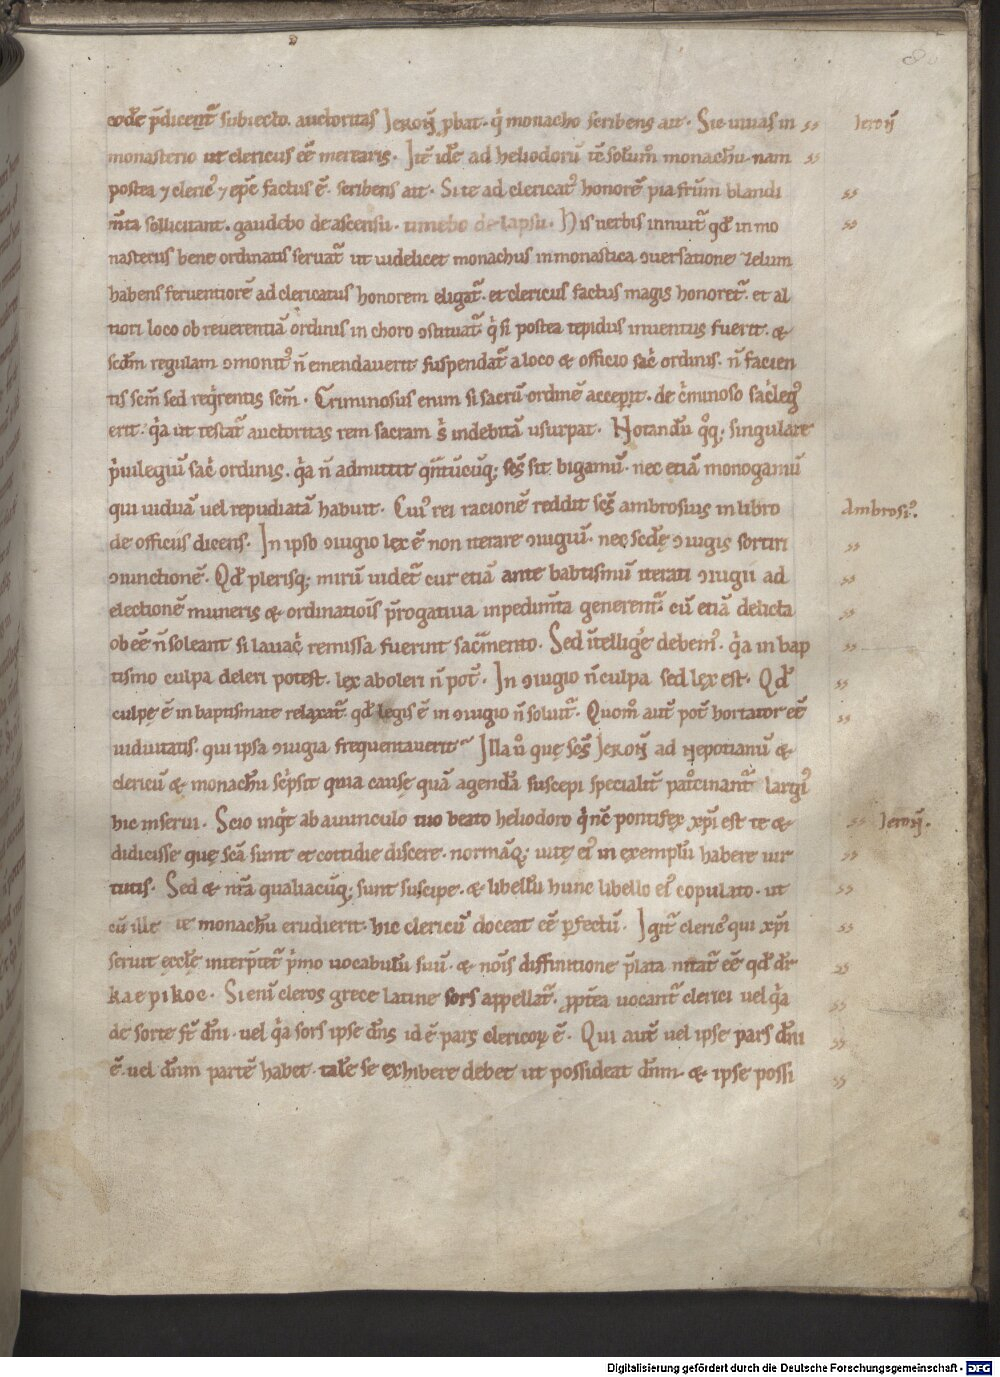 eodē p̄dicent᷑ subiecto. auctoritas Jeroñ ꝓbat. qͥ monacho scribens ait. Sic uiuas in Jeroñ
monasterio ut clericus eē merearis. Itē idē ad heliodorū tc̄ solum̄ monachū. nam
postea ⁊ cleric᷒ ⁊ ep̄c factus ē. scribens ait. Si te ad clericat᷒ honorē pia fr̄um blandi
m̄ta sollicitant. gaudebo de ascensu. timebo de lapsu. His uerbis innuit᷑ qd̄ in mo
nasteriis bene ordinatis seruat᷑ ut uidelicet monachus in monastica ɔuersatione zelum
habens feruentiorē ad clericatus honorem eligat᷑. et clericus factus magis honoret᷑. et al
tiori loco ob reuerentiā ordinis in choro ɔstituat᷑ qͥ si postea tepidus inuentus fuerit. &
scd̄m regulam ɔmonit᷒ n̄ emendauerit suspendat᷑ a loco & officio sac̄ ordinis. n̄ facien
tis scm̄ sed req̄rentis scm̄. Criminosus enim si sacrū ordinē acceꝑit. de cͥminoso sac̄leg᷒
erit. qͥa ut testat᷑ auctoritas rem sacram sͥ indebitā usurpat. Notandū qͦq; singulare
pͥuilegiū sac̄ ordinis. qͥa n̄ admittit qn̄tūcūq; scs̄ sit bigamū. nec etiā monogamū
qui uiduā uel repudiatā habuit. Cui᷒ rei racionē reddit scs̄ ambrosius in libro Ambrosi᷒.
de officiis dicens. In ipso ɔiugio lex ē non iterare ɔiugiū. nec scd̄ę ɔiugis sortiri
ɔiunctionē. Qd̄ plerisq; mirū uidet᷑ cur etiā ante babtismū iterati ɔiugii ad
electionē muneris & ordinatiōis p̄rogatiua inpedim̄ta generent᷑. cū etiā delicta
obeē n̄ soleant si lauac̄ remissa fuerint sac̄mento. Sed īntelliḡe debem᷒. qͥa in bap
tismo culpa deleri potest. lex aboleri n̄ pot᷑. In ɔiugio n̄ culpa sed lęx est. Qd̄
culpę ē in baptismate relaxat᷑. qd̄ legis ē in ɔiugio n̄ soluit᷑. Quom̄ aut̄ pot᷑ hortator eē
uiduitatis. qui ipsa ɔiugia frequentauerit. Illa u̇ quę scs̄ Jeroñ ad nepotianū &
clericū & monachū sc̄psit quia causę quā agendā suscepi specialit᷑ patͦcinant᷑ largi᷒
hic inserui. Scio inqͥt ab auunculo tuo beato heliodoro qͥ nc̄ pontifex xp̄i est te & Jeroñ.
didicisse quę scā sunt et cottidie discere. normāq; uitę ei᷒ in exemplū habere uir
tutis. Sed & nr̄a qualiacūq; sunt suscipe. & libellū hunc libello ei᷒ copulato. ut
cū ille te monachū erudierit. hic clericū doceat eē ꝑfectū. Igit᷑ cleric᷒ qui xp̄i
seruit ęccl̄ę interp̄tet᷑ pͥmo uocabulū suū. & nōis diffinitione p̄lata nitat᷑ eē qd̄ dr̄
kaepikoc. Si enī cleros grece latine sors appellat᷑. ꝓpt̄ea uocant᷑ clerici uel qͥa
de sorte st̄ dn̄i. uel qͥa sors ipse dn̄s id ē pars clericoꝝ ē. Qui aut̄ uel ipse pars dn̄i
ē. uel dn̄m partē habet. talē se exhibere debet ut possideat dn̄m. & ipse possi
Digitalisierung gefördert durch die Deutsche Forschungsgemeinschaft - DFG